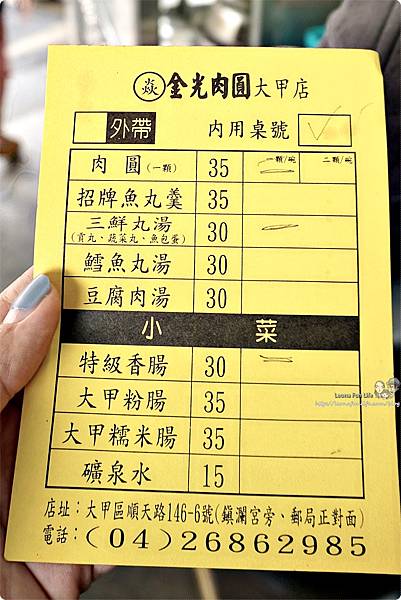 焱 金光肉圓 大甲店
外帶 內用桌號
肉圓(一顆) 35 一顆/碗 二顆/碗
招牌魚丸羹 35
三鮮丸湯 30
(貢丸、蔬菜丸、魚包蛋)
鱈魚丸湯 30
豆腐肉湯 30
小菜
特級香腸 30
大甲粉腸 35
大甲糯米腸 35
礦泉水 15
店址：大甲區順天路146-6號(鎮瀾宮旁、郵局正對面)
電話：(04)26862985